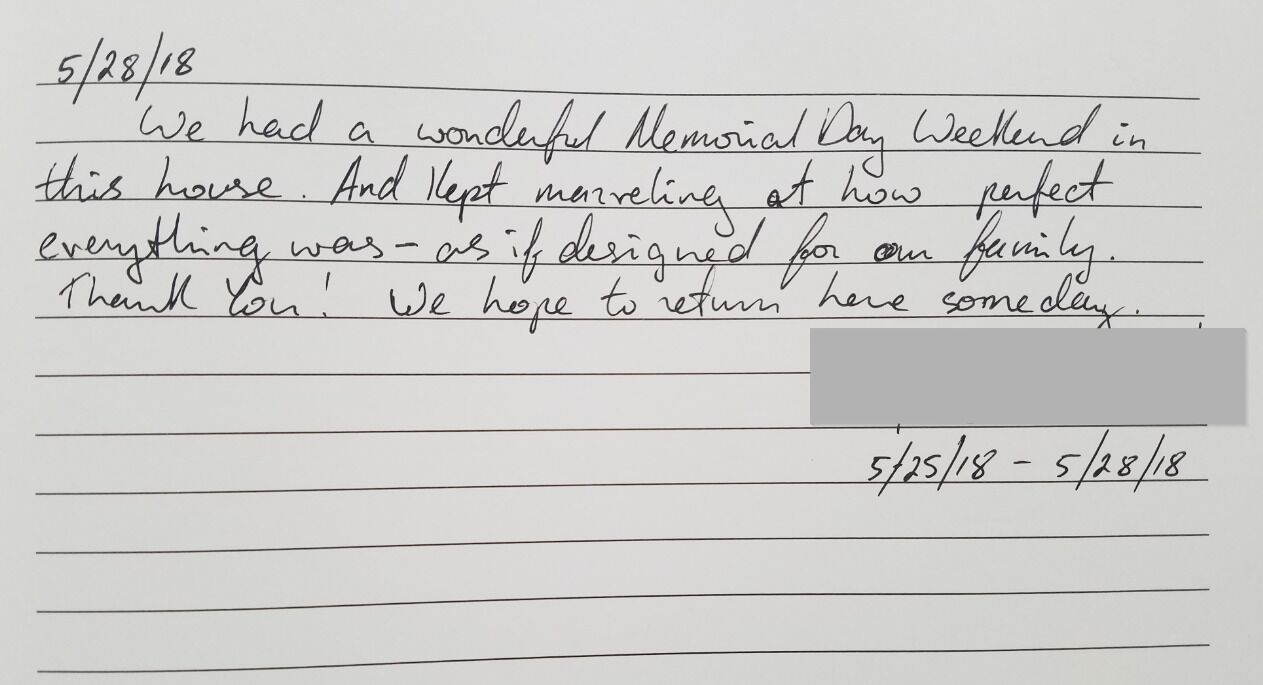 5/28/18
We had a wonderful Memorial Day Weekend in
this house. And Kept marveling at how perfect
everything was - as if designed for our family.
Thank You! We hope to return here someday.
5/25/18 - 5/28/18